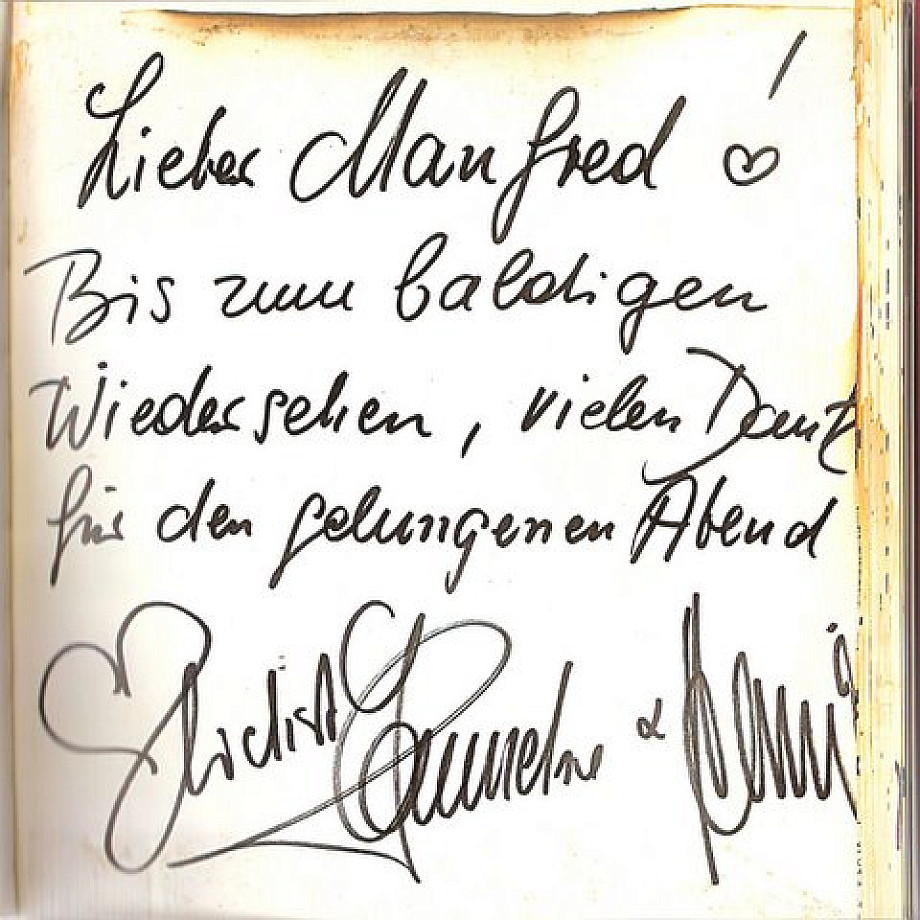 Lieber Manfred!
Bis zum baldigen
Wiedersehen, vielen Dank
für den gelungenen Abend
&